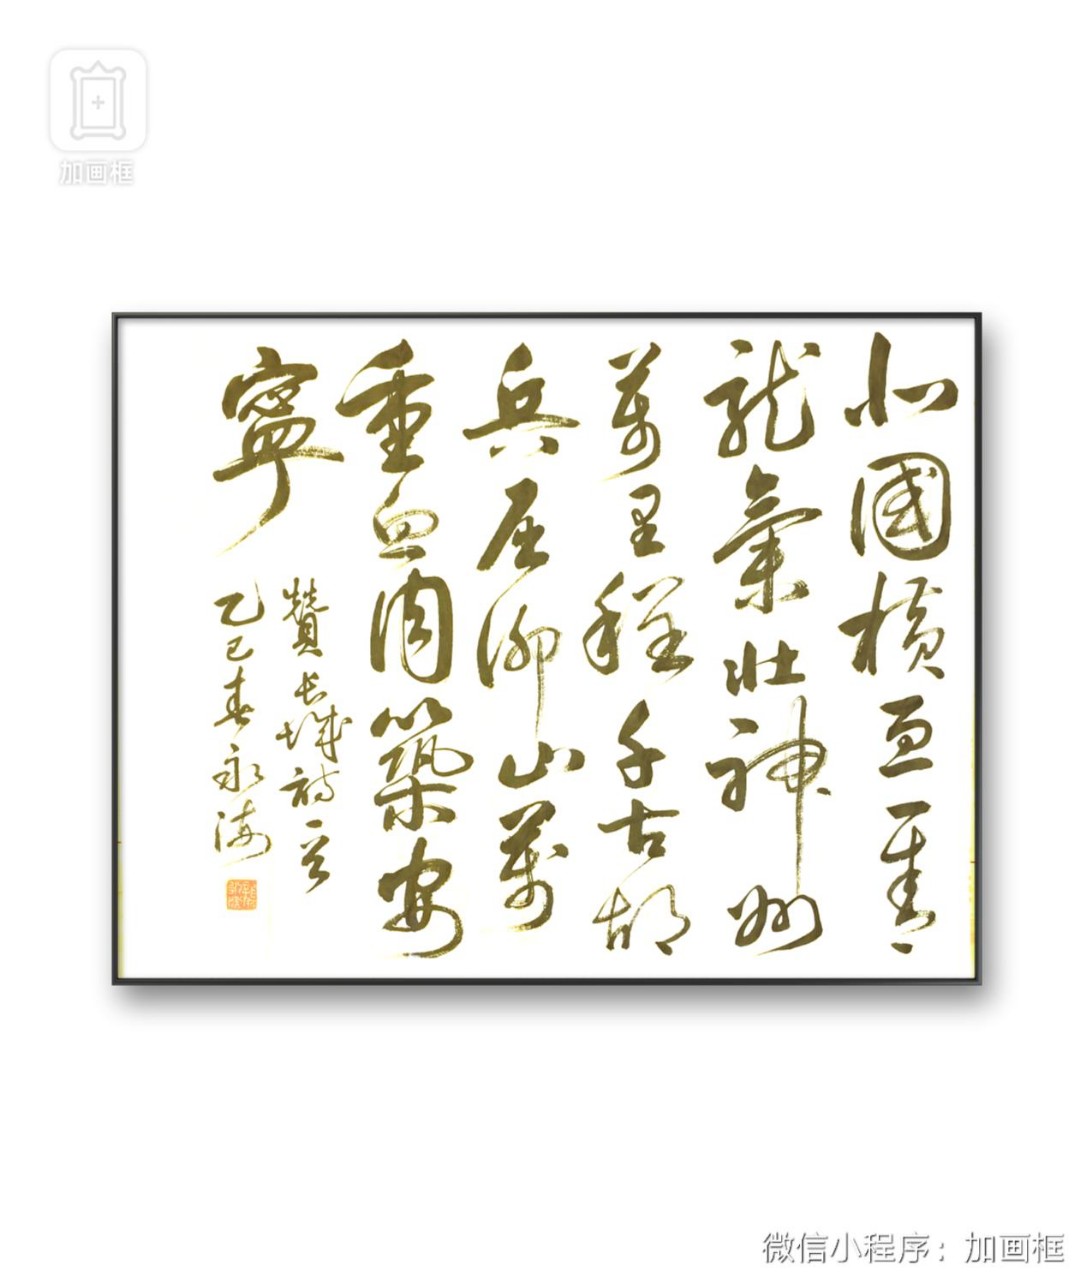 加画框
北國橫亘一青
龍氣壯神州
萬里程千古胡
兵屈御山萬
重血肉築安
寧
贊長城詩一首
乙巳春永海
微信小程序：加画框